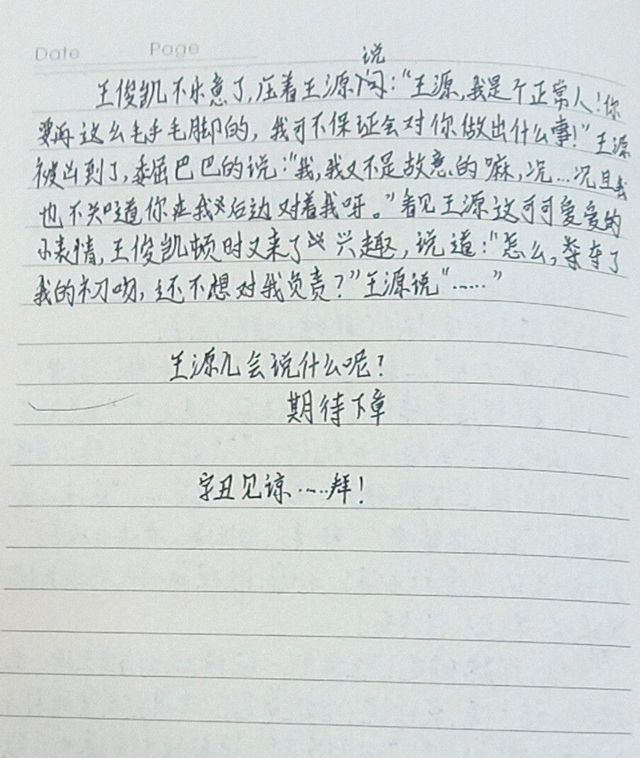 Date Page
说
王俊凯不乐意了,压着王源问:“王源,我是个正常人!你
要再这么毛手毛脚的,我可不保证会对你做出什么事!”王源
被凶到了,委屈巴巴的说:“我,我又不是故意的嘛,况…况且我
也不知道你在我后边对着我呀。”看见王源这可可爱爱的
小表情,王俊凯顿时又来了兴趣,说道:“怎么,夺了
我的初吻,还不想对我负责?”王源说“……”
王源儿会说什么呢?
期待下章
字丑见谅……拜!